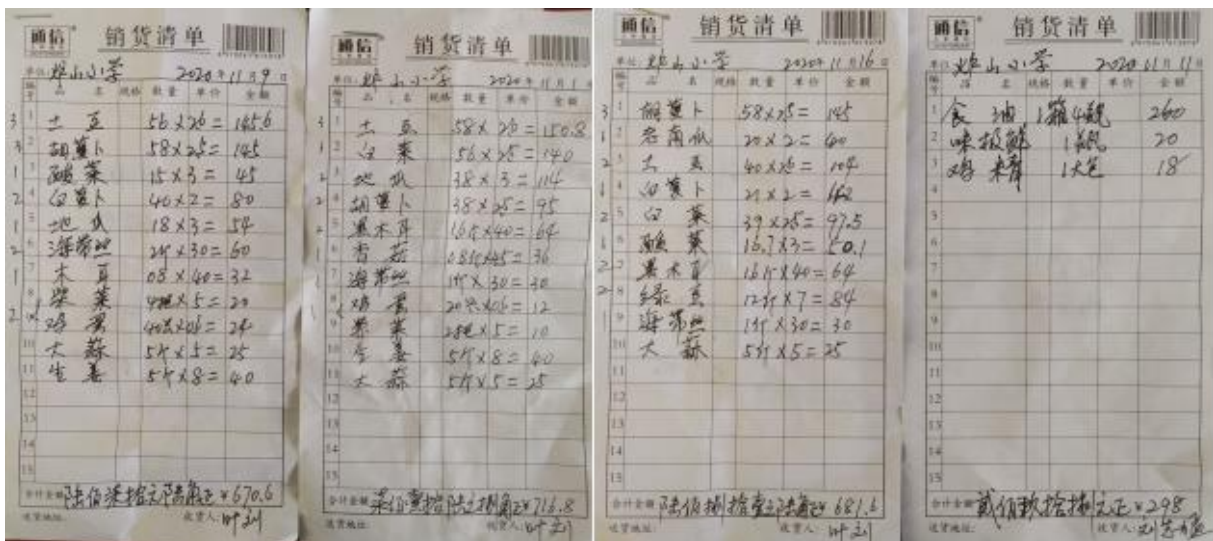 通信
销货清单
单位: 炉山小学 2020年11月9日
编号 品名 规格 数量 单价 金额
3 1 土豆 56×26=145.6
3 2 胡萝卜 58×25=145
1 3 酸菜 15×3=45
2 4 白萝卜 40×2=80
1 5 地瓜 18×3=54
2 6 海带丝 2斤×30=60
1 7 木耳 08×40=32
8 紫菜 4×5=20
2 9 鸡蛋 40×06=24
10 大蒜 5斤×5=25
11 生姜 5斤×8=40
12
13
14
15
合计金额 陆佰柒拾元陆角正 ¥670.6
送货地址: 收货人: 叶
通信
销货清单
单位: 炉山小学 2020年11月1日
编号 品名 规格 数量 单价 金额
3 1 土豆 58×26=150.8
1 2 白菜 56×25=140
2 3 地瓜 38×3=114
2 4 胡萝卜 38×25=95
2 5 黑木耳 16斤×40=64
1 6 香菇 08斤×45=36
1 7 海带丝 1斤×30=30
8 鸡蛋 20×06=12
9 紫菜 2×5=10
10 生姜 5斤×8=40
11 大蒜 5斤×5=25
12
13
14
15
合计金额 柒佰壹拾陆元捌角正 ¥716.8
送货地址: 收货人: 叶
通信
销货清单
单位: 炉山小学 2020年11月16日
编号 品名 规格 数量 单价 金额
3 1 胡萝卜 58×25=145
1 2 老南瓜 20×2=40
2 3 土豆 40×26=104
1 4 白萝卜 21×2=42
2 5 白菜 39×25=97.5
1 6 酸菜 16.7×3=50.1
2 7 黑木耳 16斤×40=64
2 8 绿豆 12斤×7=84
1 9 海带丝 1斤×30=30
10 大蒜 5斤×5=25
11
12
13
14
15
合计金额 陆佰捌拾壹元陆角正 ¥681.6
送货地址: 收货人: 叶
通信
销货清单
单位: 炉山小学 2020年11月11日
编号 品名 规格 数量 单价 金额
1 食油 1箱4瓶 260
2 味极鲜 1瓶 20
3 鸡精 1大包 18
4
5
6
7
8
9
10
11
12
13
14
15
合计金额 贰佰玖拾捌元正 ¥298
送货地址: 收货人: